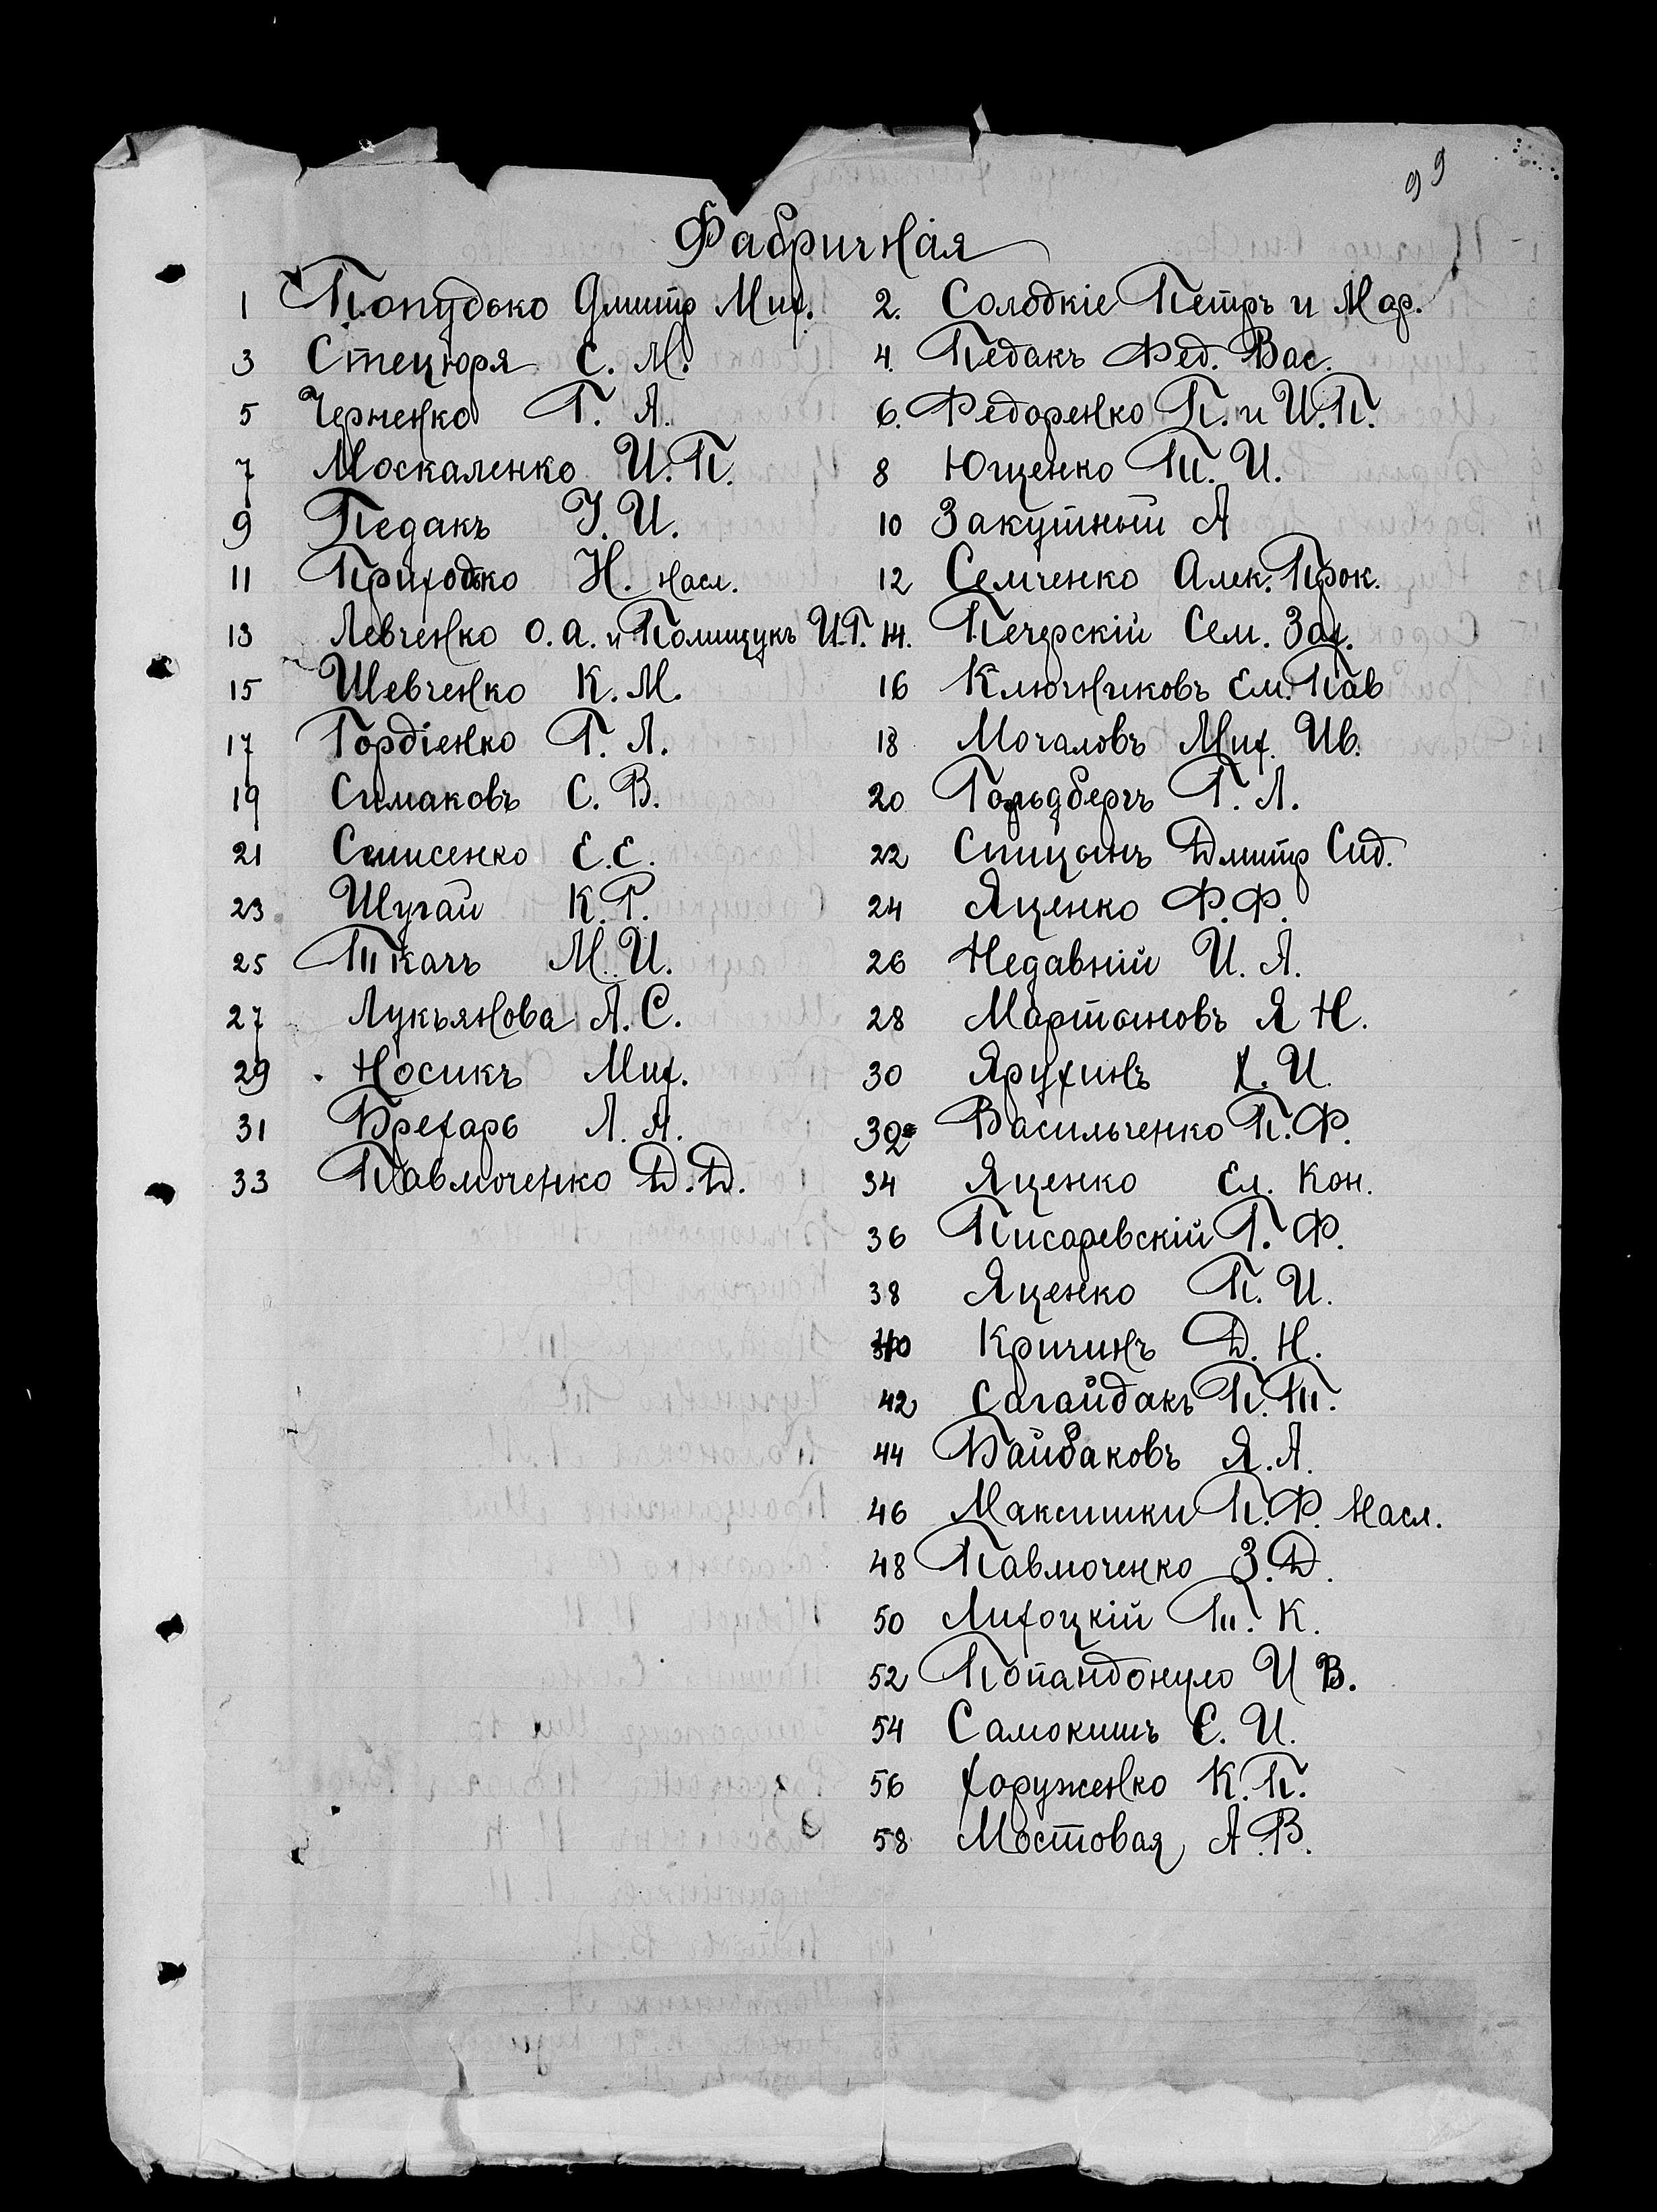 99
Фабричная
1 Попудько Дмитр Мих. 2. Солодкіе Петръ и Мар.
3 Стецюря С. М. 4. Педакъ Фед. Вас.
5 Черненко Г. А. 6. Федоренко П. и И.П.
7 Москаленко И. П. 8 Ющенко Т. И.
9 Педакъ І. И. 10 Закутный А
11 Приходько Н. насл. 12 Семченко Алек. Прок.
13 Левченко О. А. и Полищукъ И.Г. 14. Печерскій Сем. Зах.
15 Шевченко К. М. 16 Ключниковъ Ем. Пав
17 Гордіенко Г. Л. 18 Мочаловъ Мих. Ив.
19 Симаковъ С. В. 20 Гольдбергъ Г. Л.
21 Е. Е. 22 Спицынъ Дмитр Сид.
23 Шугай К. Г. 24 Яценко Ф. Ф.
25 Ткачъ М. И. 26 Недавній И. А.
27 Лукьянова А. С. 28 Мартыновъ Я Н.
29 Носикъ Мих. 30 Ярухинъ И.
31 Брехарь Л. А. 32 Васильченко П. Ф.
33 Павлюченко Д. Д. 34 Яценко Ел. Кон.
36 Писаревскій Г. Ф.
38 Яценко П. И.
40 Кричинъ Д. Н.
42 Сагайдакъ П. Т.
44 Байбаковъ Я. А.
46 Максишки П. Ф. Насл.
48 Павлюченко З. Д.
50 Лихоцкій Т. К.
52 Попандопуло И В.
54 Самокишъ С. И.
56 Хоруженко К. П.
58 Мостовая А. В.